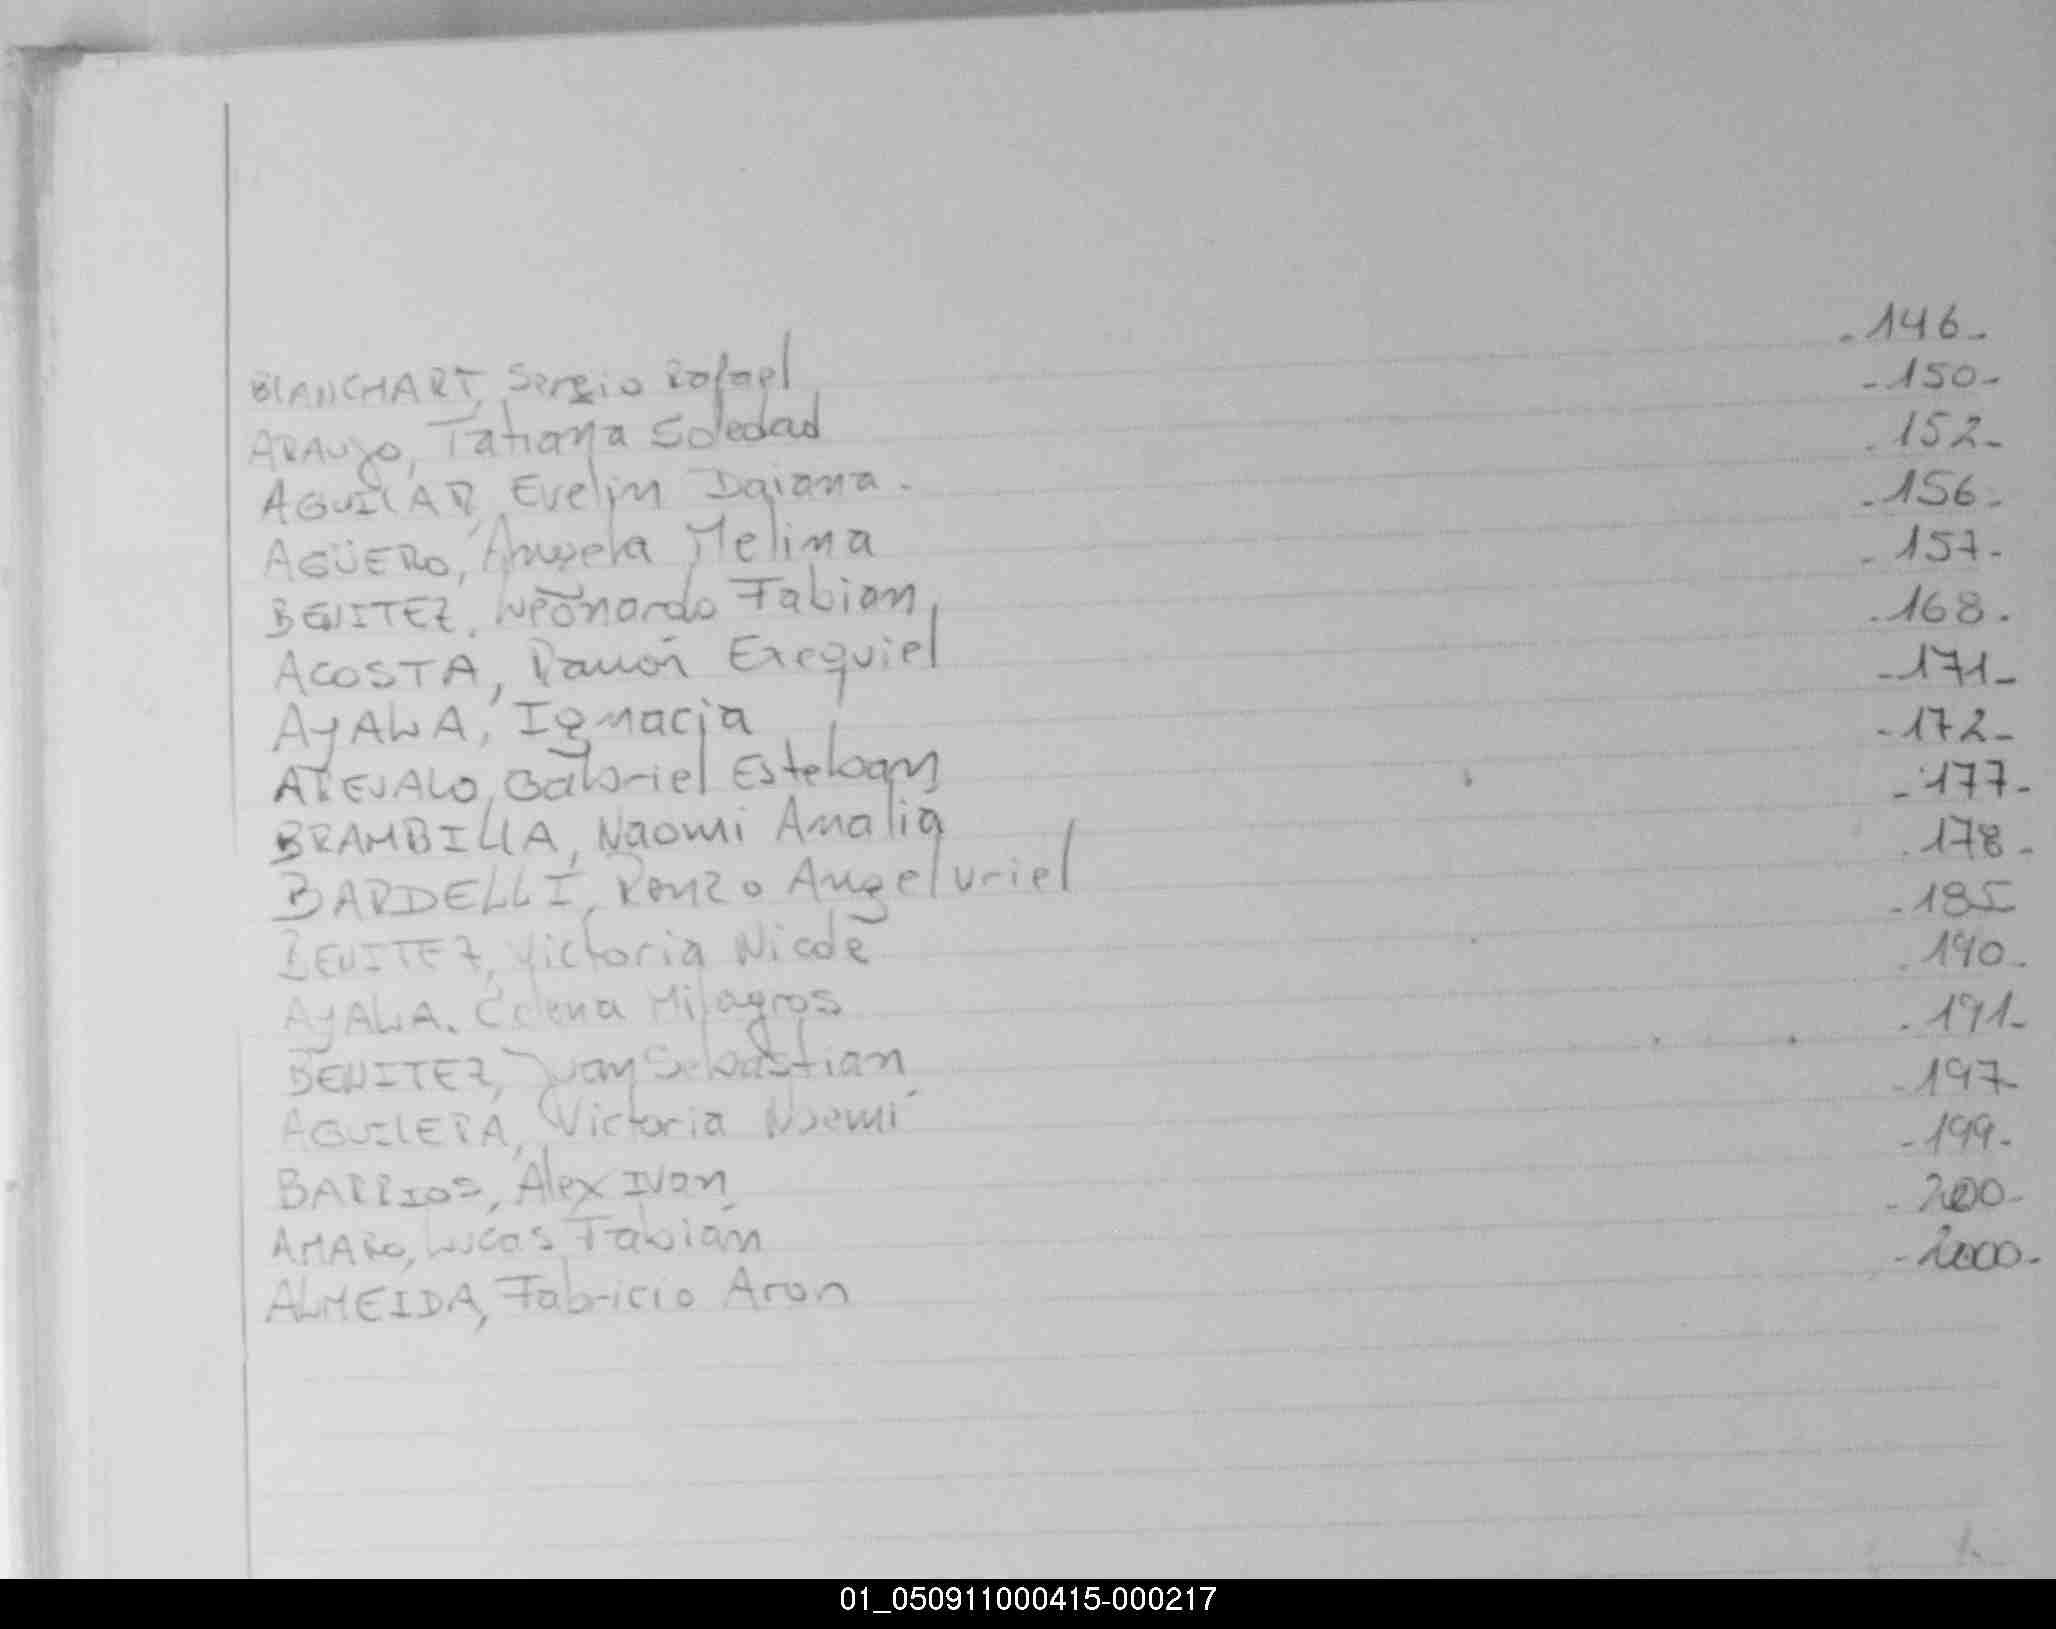 BLANCHART, Sergio Rafael -146-
ARAUJO, Tatiana Soledad -150-
AGUILAR, Evelin Daiana. -152-
AGÜERO, Angela Melina -156-
BENITEZ, Leonardo Fabian -157-
ACOSTA, Ramón Exequiel -168-
AYALA, Ignacia -171-
AREVALO, Gabriel Esteban -172-
BRAMBILLA, Naomi Amalia -177-
BARDELLI, Renzo Angel Uriel -178-
BENITEZ, Victoria Nicole -185
AYALA, Milagros -190-
BENITEZ, Juan Sebastian -191-
AGUILERA, Victoria Noemí -197-
BARRIOS, Alex Ivan -199-
AMARO, Lucas Fabián -200-
ALMEIDA, Fabricio Aron -2000-
01_050911000415-000217